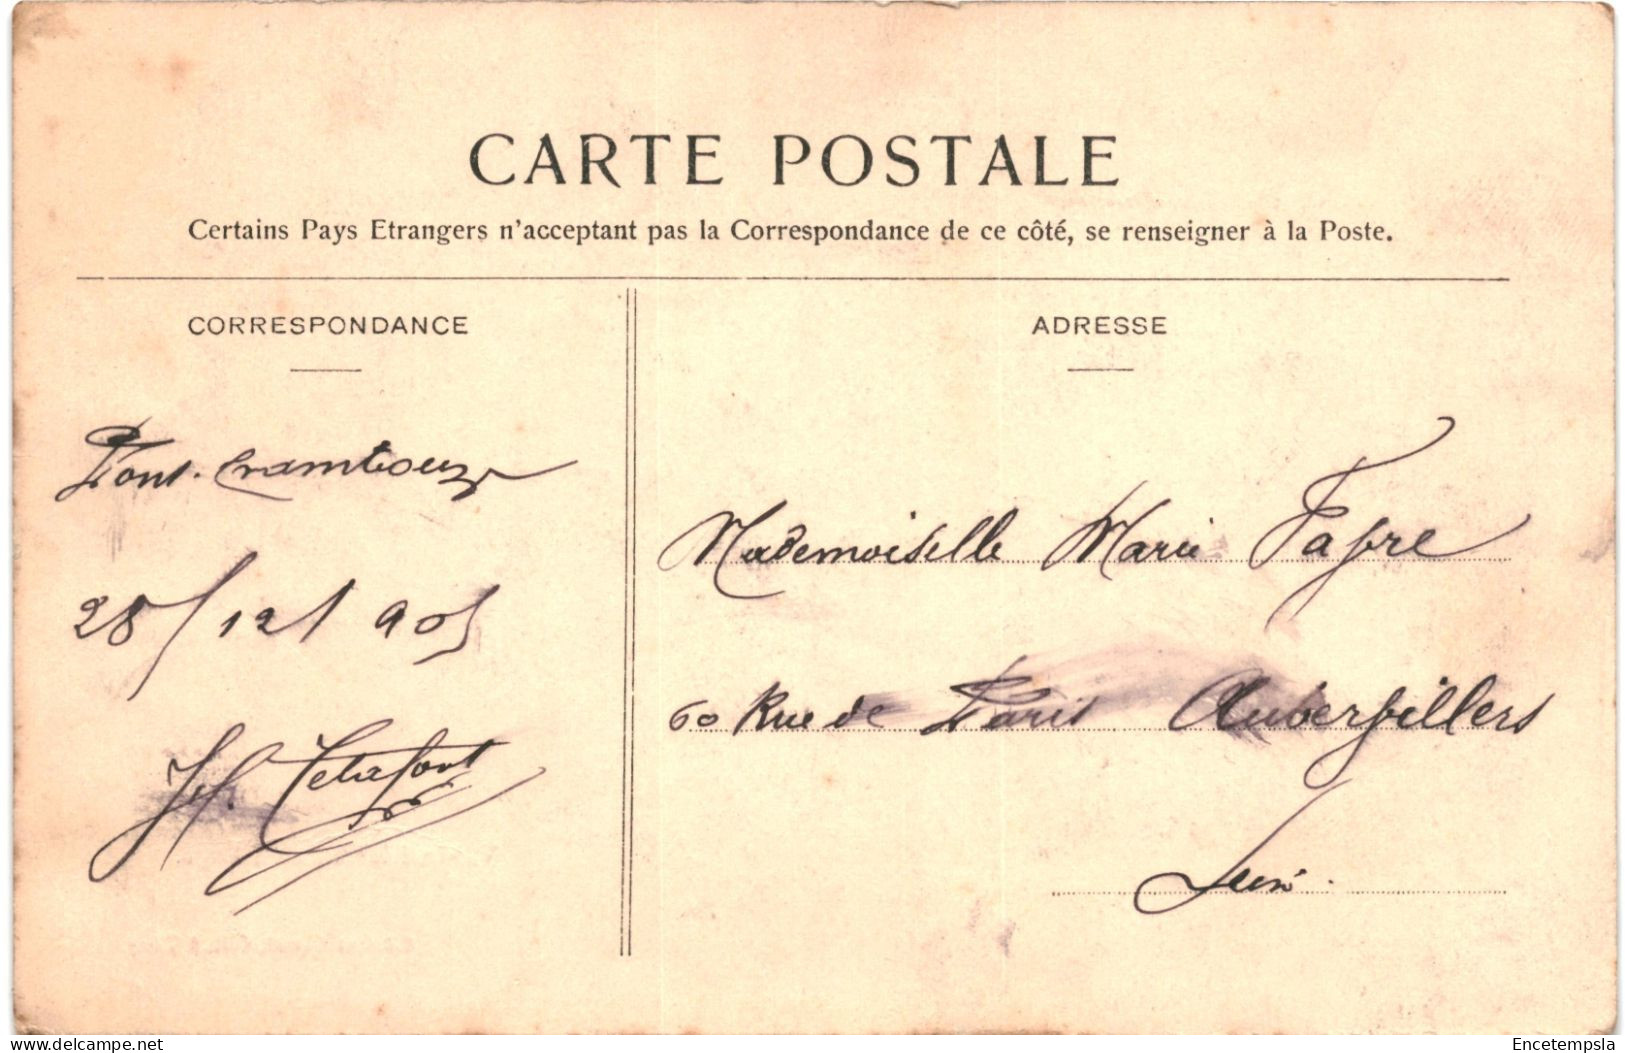 CARTE POSTALE
Certains Pays Etrangers n'acceptant pas la Correspondance de ce côté, se renseigner à la Poste.
CORRESPONDANCE
Pont-Trambouze
28/12/905
ADRESSE
Mademoiselle Marie Fafre
60 Rue de Paris Aubervillers
Seine
delcampe.net
Encetempsla